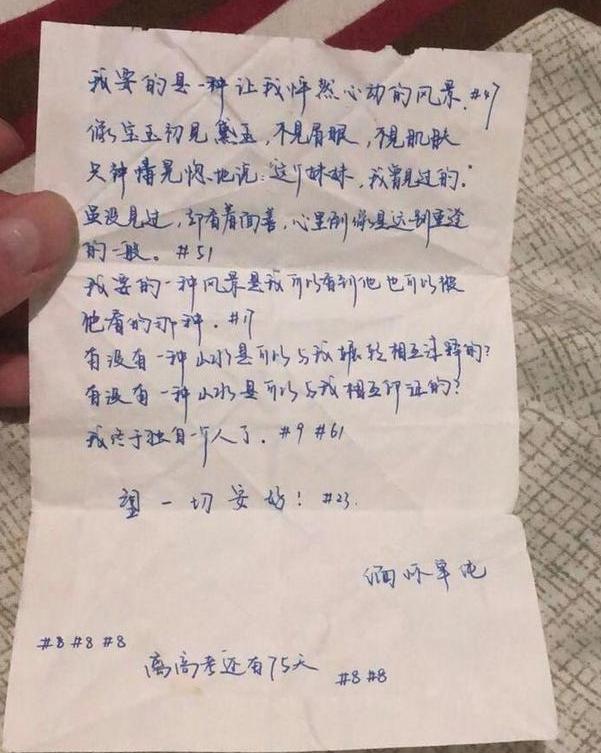 我要的是一种让我怦然心动的风景.#47
像宝玉初见黛玉,不见眉眼,不见肌肤
只钟情晃惚地说:这个妹妹,我曾见过的.
虽没见过,却看着面善,心里倒像是远别重逢
的一般。#51
我要的一种风景是我可以看到他也可以被
他看的那种.#17
有没有一种山水是可以与我辗转相互诠释的?
有没有一种山水是可以与我相互印证的?
我终于独自一个人了.#9 #61
望一切安好!#23.
缅怀单纯
#8 #8 #8
离高考还有75天
#8 #8